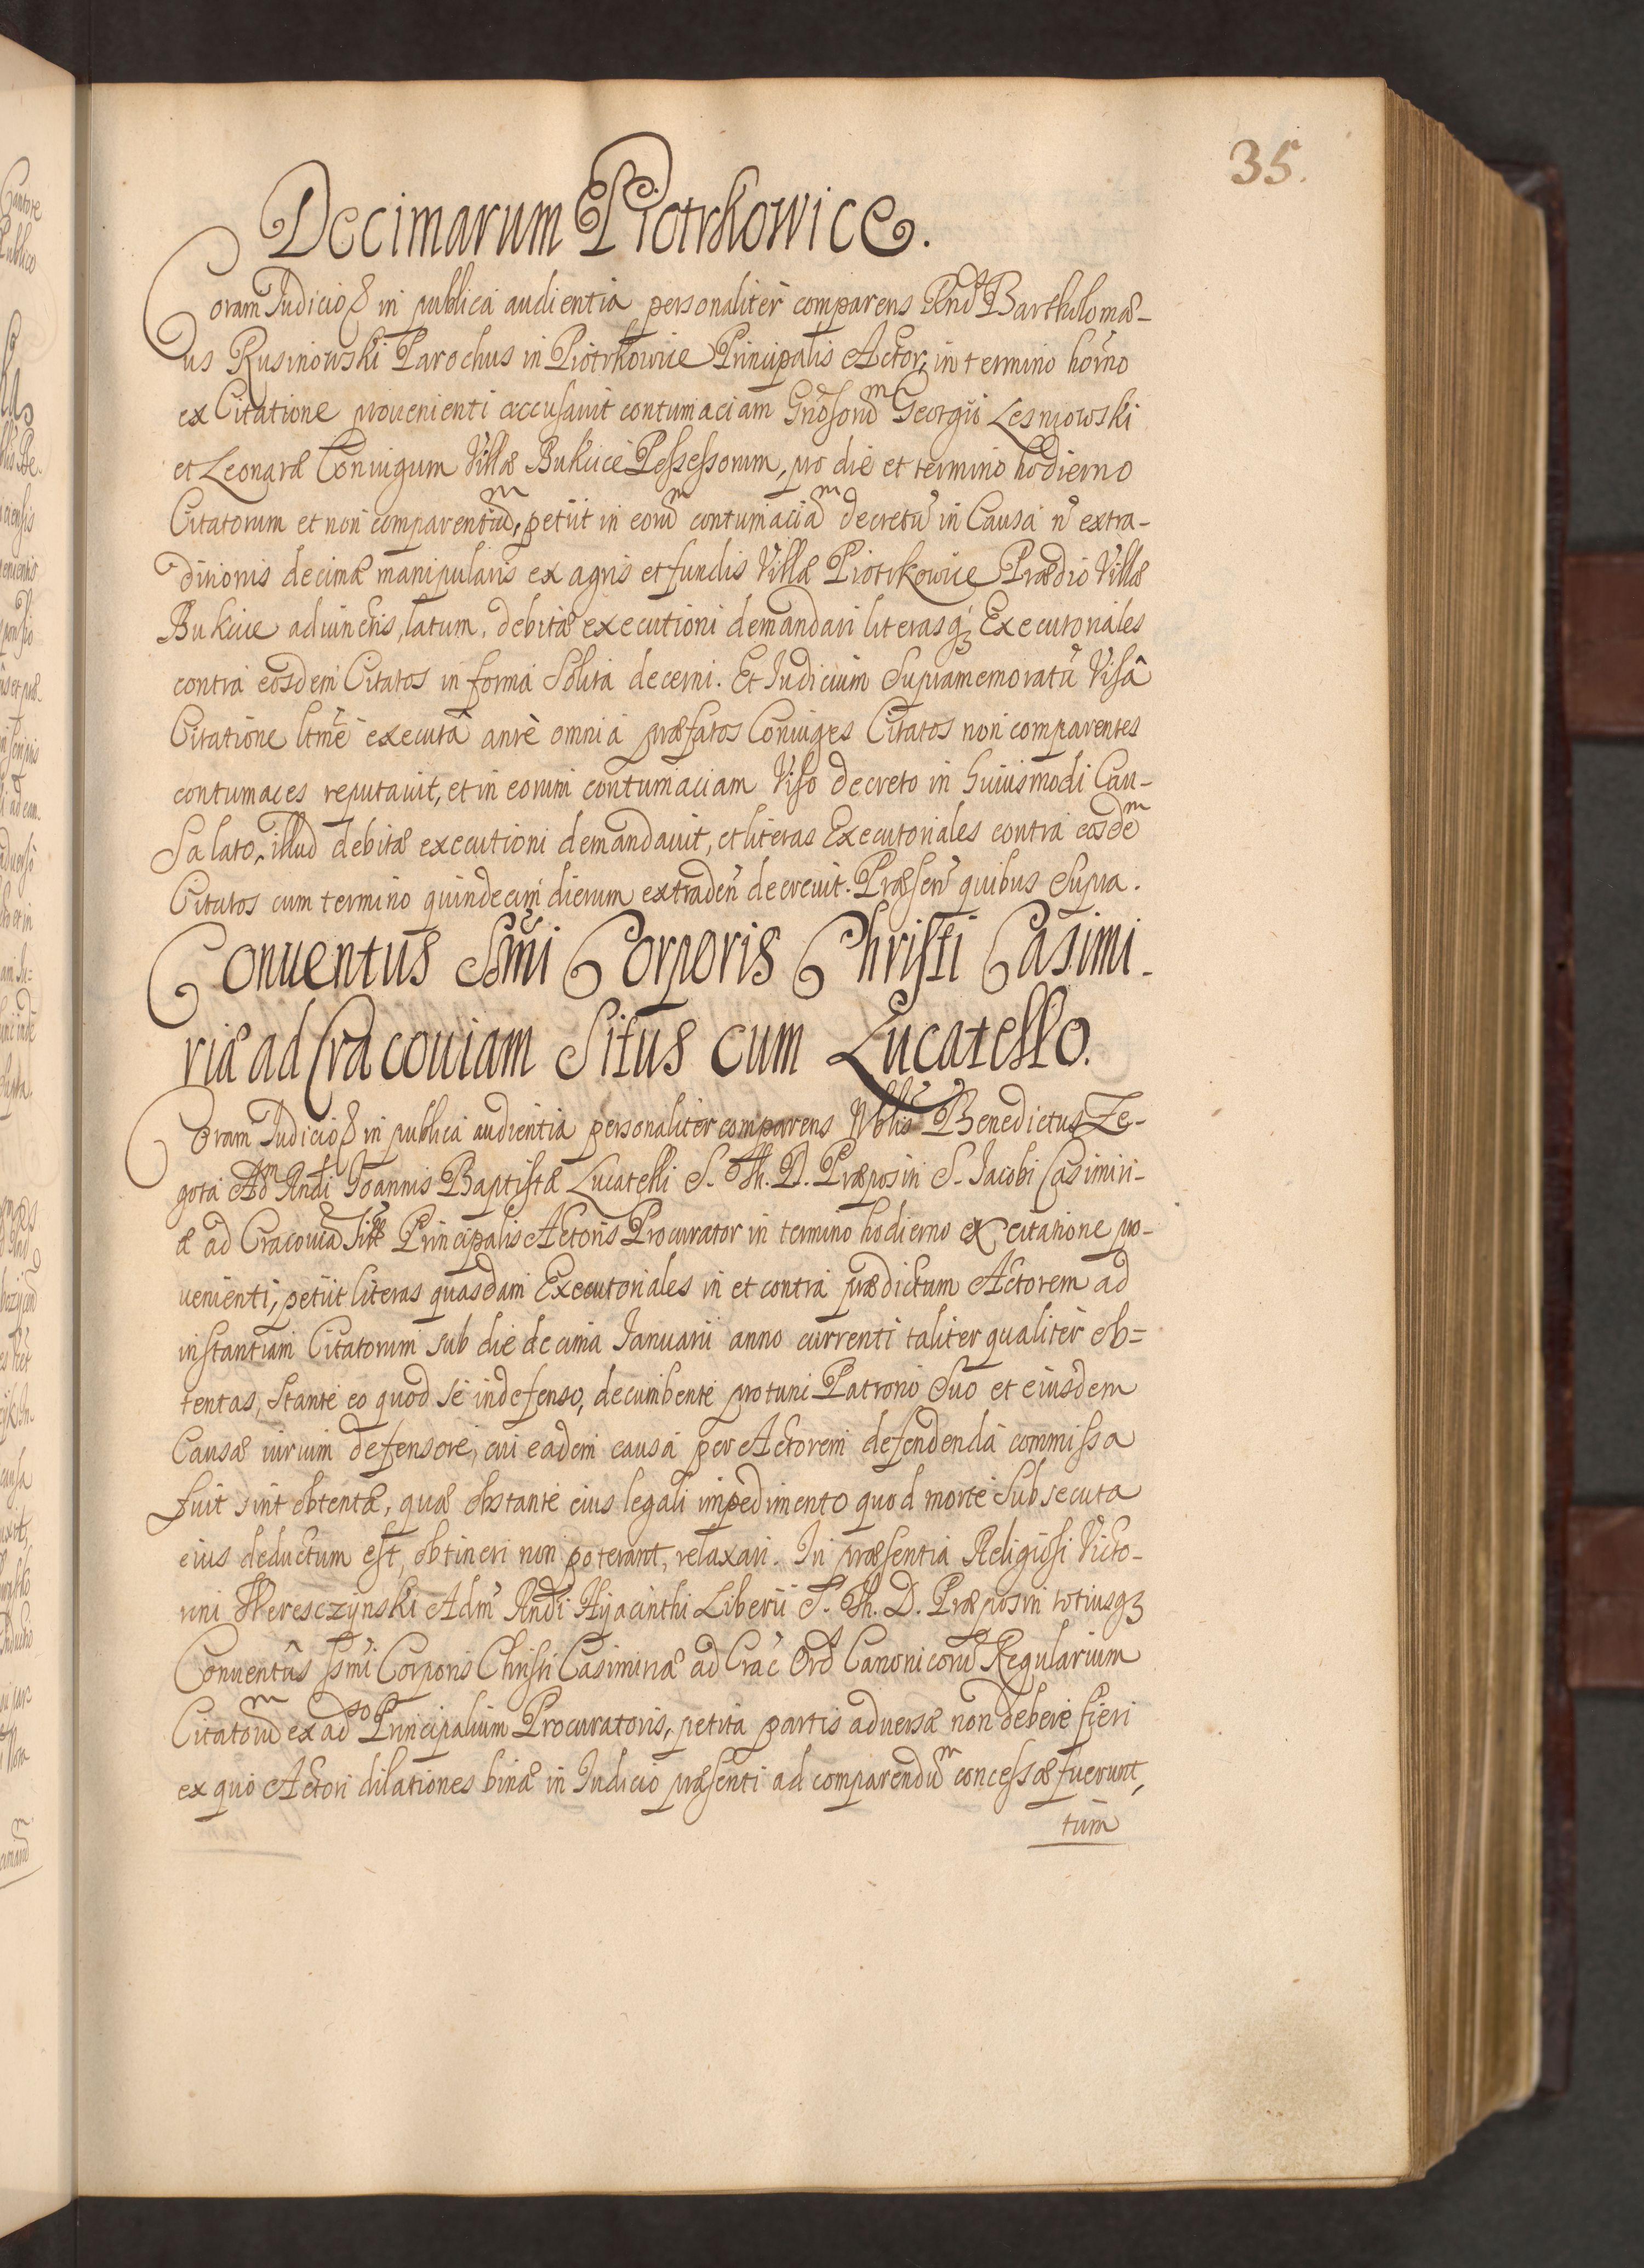 35.
Decimarum Piotrkowice.
Coram Judicio in publica audientia personaliter comparens Rndˢ Bartholomæ-
us Rusinowski Parochus in Piotrkowice Principalis Actor, in termino horno
ex Citatione prouenienti accusauit contumaciam Gnosorum Georgii Lesniowski
et Leonaræ Coniugum Villæ Bukcice Possessorum, pro die et termino hodierno
Citatorum et non comparentium, petiit in eorum contumaciam decretũ in Causa nẽ extra-
ditionis decimæ manipularis ex agris et fundis Villæ Piotrkowice Prædio Villæ
Bukcice adiunctis, latum, debitæ executioni demandari literasqȝ Executoriales
contra eosdem Citatos in forma Solita decerni. Et Judicium Supramemoratũ Visâ
Citatione ltmẽ executâ ante omnia præfatos Coniuges Citatos non comparentes
contumaces reputauit, et in eorum contumaciam Viso decreto in huiusmodi Cau-
Sa lato, illud debitæ executioni demandauit, et literas Executoriales contra eosdẽm
Citatos cum termino quindecim dierum extradeñ decreuit. Præsen̄ quibus Supra.
Conuentus SSmi Corporis Christi Casimi-
riæ ad Cracouiam Situs cum Lucatello.
Coram Judicio in publica audientia personaliter comparens Nblis Benedictus Ze-
gota Adm Rndi Joannis Baptistæ Lucatelli S. Th. D. Præpositi S. Jacobi Casimiri-
æ ad Cracouiã Principalis Actoris Procurator in termino hodierno ex citatione pro-
uenienti, petiit literas quasdam Executoriales in et contra prædictum Actorem ad
instantiam Citatorum sub die decima Januarii anno currenti taliter qualiter ob=
tentas, Stante eo quod se indefenso, decumbente protunc Patrono Suo et eiusdem
Causæ iurium defensore, cui eadem causa per Actorem defendenda commissa
fuit sint obtentæ, quæ obstante eius legali impedimento quod morte Subsecuta
eius deductum est, obtineri non poterant, relaxari. In præsentia Religiosi Victo-
rini Wereszczynski Adm Rndi Hyacinthi Liberii S. Th. D. Præpositi totiusqȝ
Conuentûs ssmi Corporis Christi Casimiriæ ad Crac Ord Canonicorũ Regularium
Citatorum ex adso Principalium Procuratoris, petita partis aduersæ non debere fieri
ex quo Actori dilationes binæ in Judicio præsenti ad comparendum concessæ fuerunt,
tum